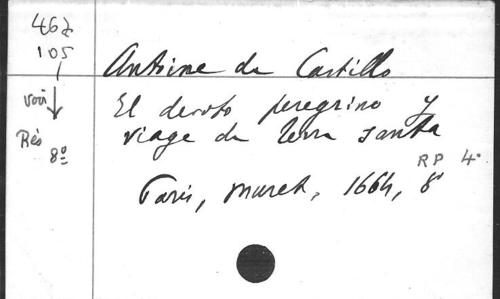 462
105
voir
Rés
8º
Antoine de Castillo
El devoto peregrino y
viage de terra santa
RP 4º
Paris, Muret, 1664, 8º